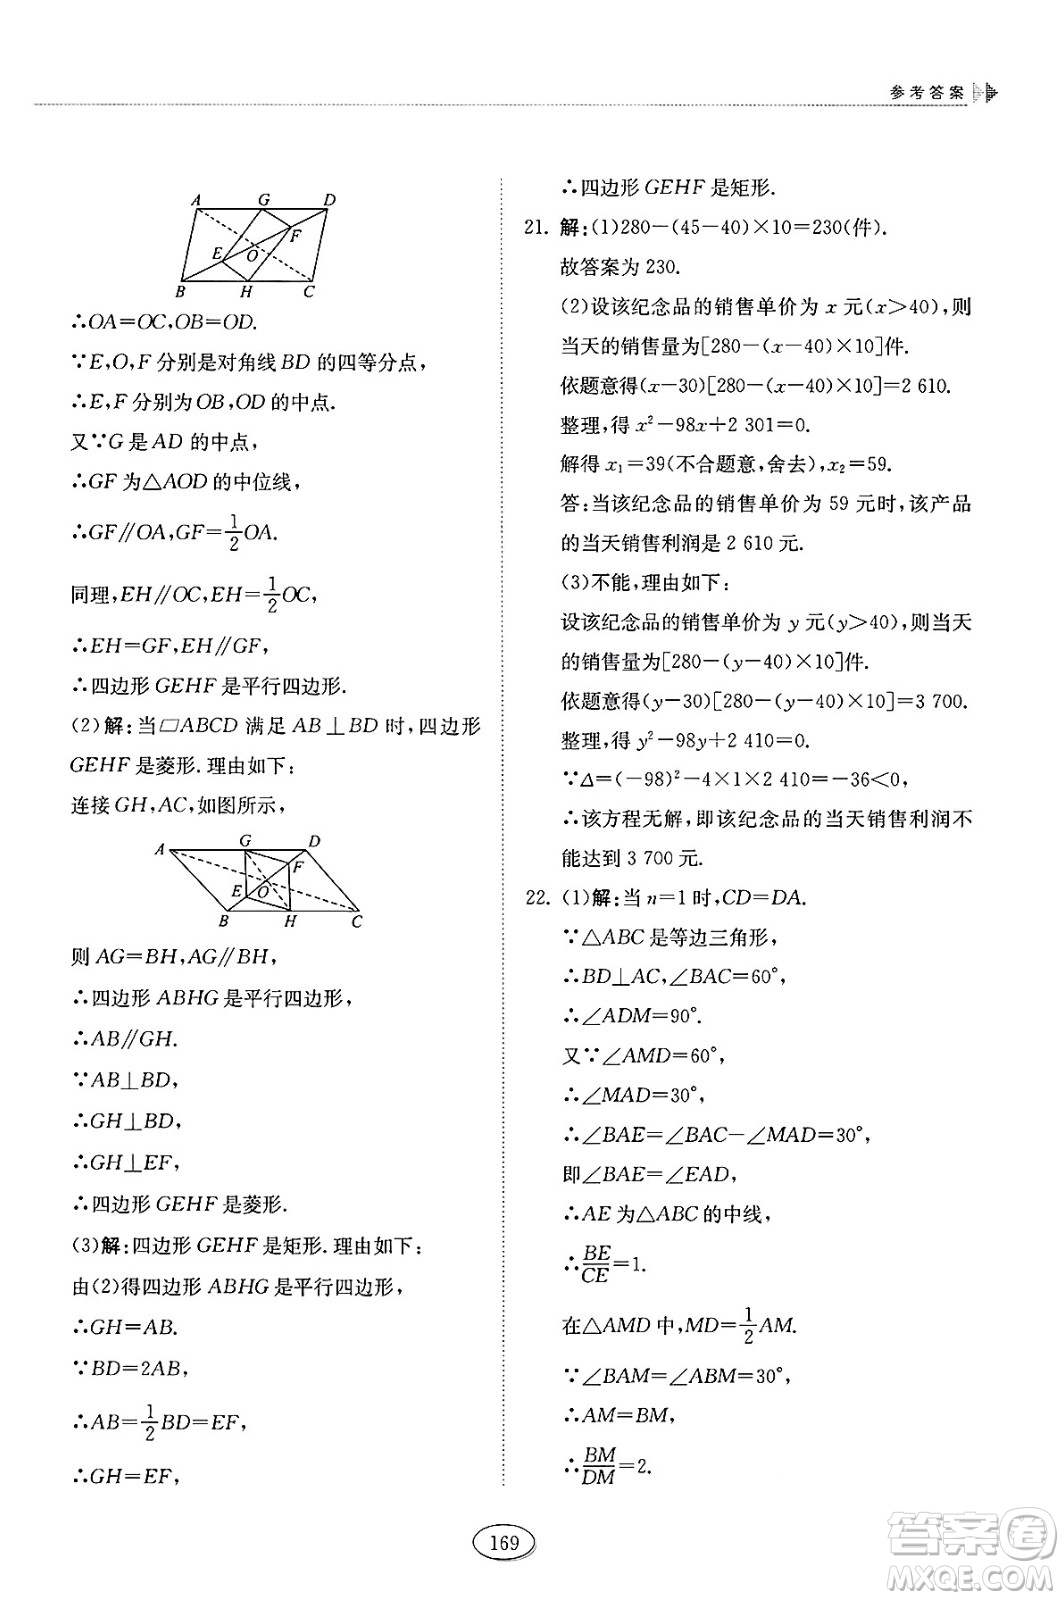 参考答案
A G D
F
E O
B H C
∴OA=OC,OB=OD.
∵E,O,F 分别是对角线 BD 的四等分点,
∴E,F 分别为 OB,OD 的中点.
又∵G 是 AD 的中点,
∴GF 为△AOD 的中位线,
∴GF∥OA,GF=1/2OA.
同理,EH∥OC,EH=1/2OC,
∴EH=GF,EH∥GF,
∴四边形 GEHF 是平行四边形.
(2)解:当▱ABCD 满足 AB⊥BD 时,四边形
GEHF 是菱形.理由如下:
连接 GH,AC,如图所示,
A G D
F
E O
B H C
则 AG=BH,AG∥BH,
∴四边形 ABHG 是平行四边形,
∴AB∥GH.
∵AB⊥BD,
∴GH⊥BD,
∴GH⊥EF,
∴四边形 GEHF 是菱形.
(3)解:四边形 GEHF 是矩形.理由如下:
由(2)得四边形 ABHG 是平行四边形,
∴GH=AB.
∵BD=2AB,
∴AB=1/2BD=EF,
∴GH=EF,
∴四边形 GEHF 是矩形.
21. 解:(1)280-(45-40)×10=230(件).
故答案为 230.
(2)设该纪念品的销售单价为 x 元(x>40),则
当天的销售量为[280-(x-40)×10]件.
依题意得(x-30)[280-(x-40)×10]=2 610.
整理,得 x²-98x+2 301=0.
解得 x₁=39(不合题意,舍去),x₂=59.
答:当该纪念品的销售单价为 59 元时,该产品
的当天销售利润是 2 610 元.
(3)不能,理由如下:
设该纪念品的销售单价为 y 元(y>40),则当天
的销售量为[280-(y-40)×10]件.
依题意得(y-30)[280-(y-40)×10]=3 700.
整理,得 y²-98y+2 410=0.
∵Δ=(-98)²-4×1×2 410=-36<0,
∴该方程无解,即该纪念品的当天销售利润不
能达到 3 700 元.
22. (1)解:当 n=1 时,CD=DA.
∵△ABC 是等边三角形,
∴BD⊥AC,∠BAC=60°,
∴∠ADM=90°.
又∵∠AMD=60°,
∴∠MAD=30°,
∴∠BAE=∠BAC-∠MAD=30°,
即∠BAE=∠EAD,
∴AE 为△ABC 的中线,
∴BE/CE=1.
在△AMD 中,MD=1/2AM.
∵∠BAM=∠ABM=30°,
∴AM=BM,
∴BM/DM=2.
169
答案圈
MXQE.COM